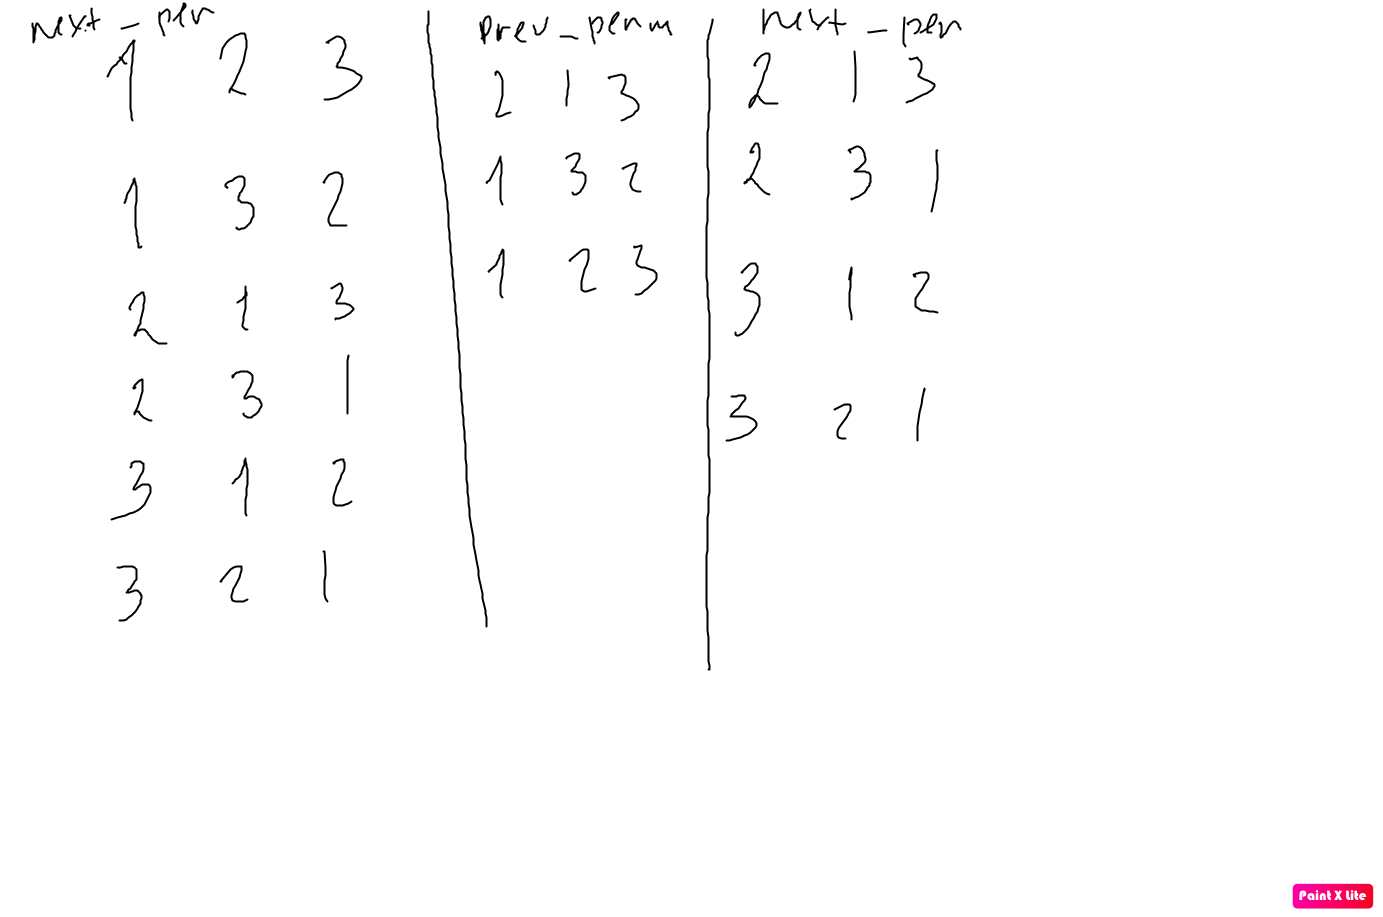 next_per
1 2 3
1 3 2
2 1 3
2 3 1
3 1 2
3 2 1
prev_perm
2 1 3
1 3 2
1 2 3
next_per
2 1 3
2 3 1
3 1 2
3 2 1
Paint X Lite